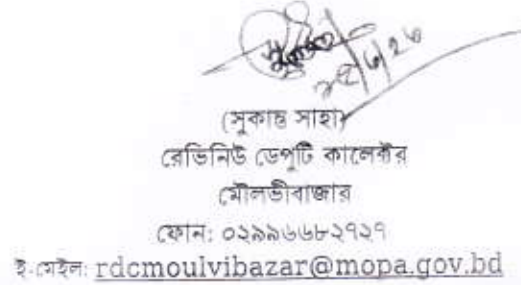 (সুকান্ত সাহা)
রেভিনিউ ডেপুটি কালেক্টর
মৌলভীবাজার
ফোন: ০২৯৯৬৬৮২৭২৭
ই-মেইল: rdcmoulvibazar@mopa.gov.bd